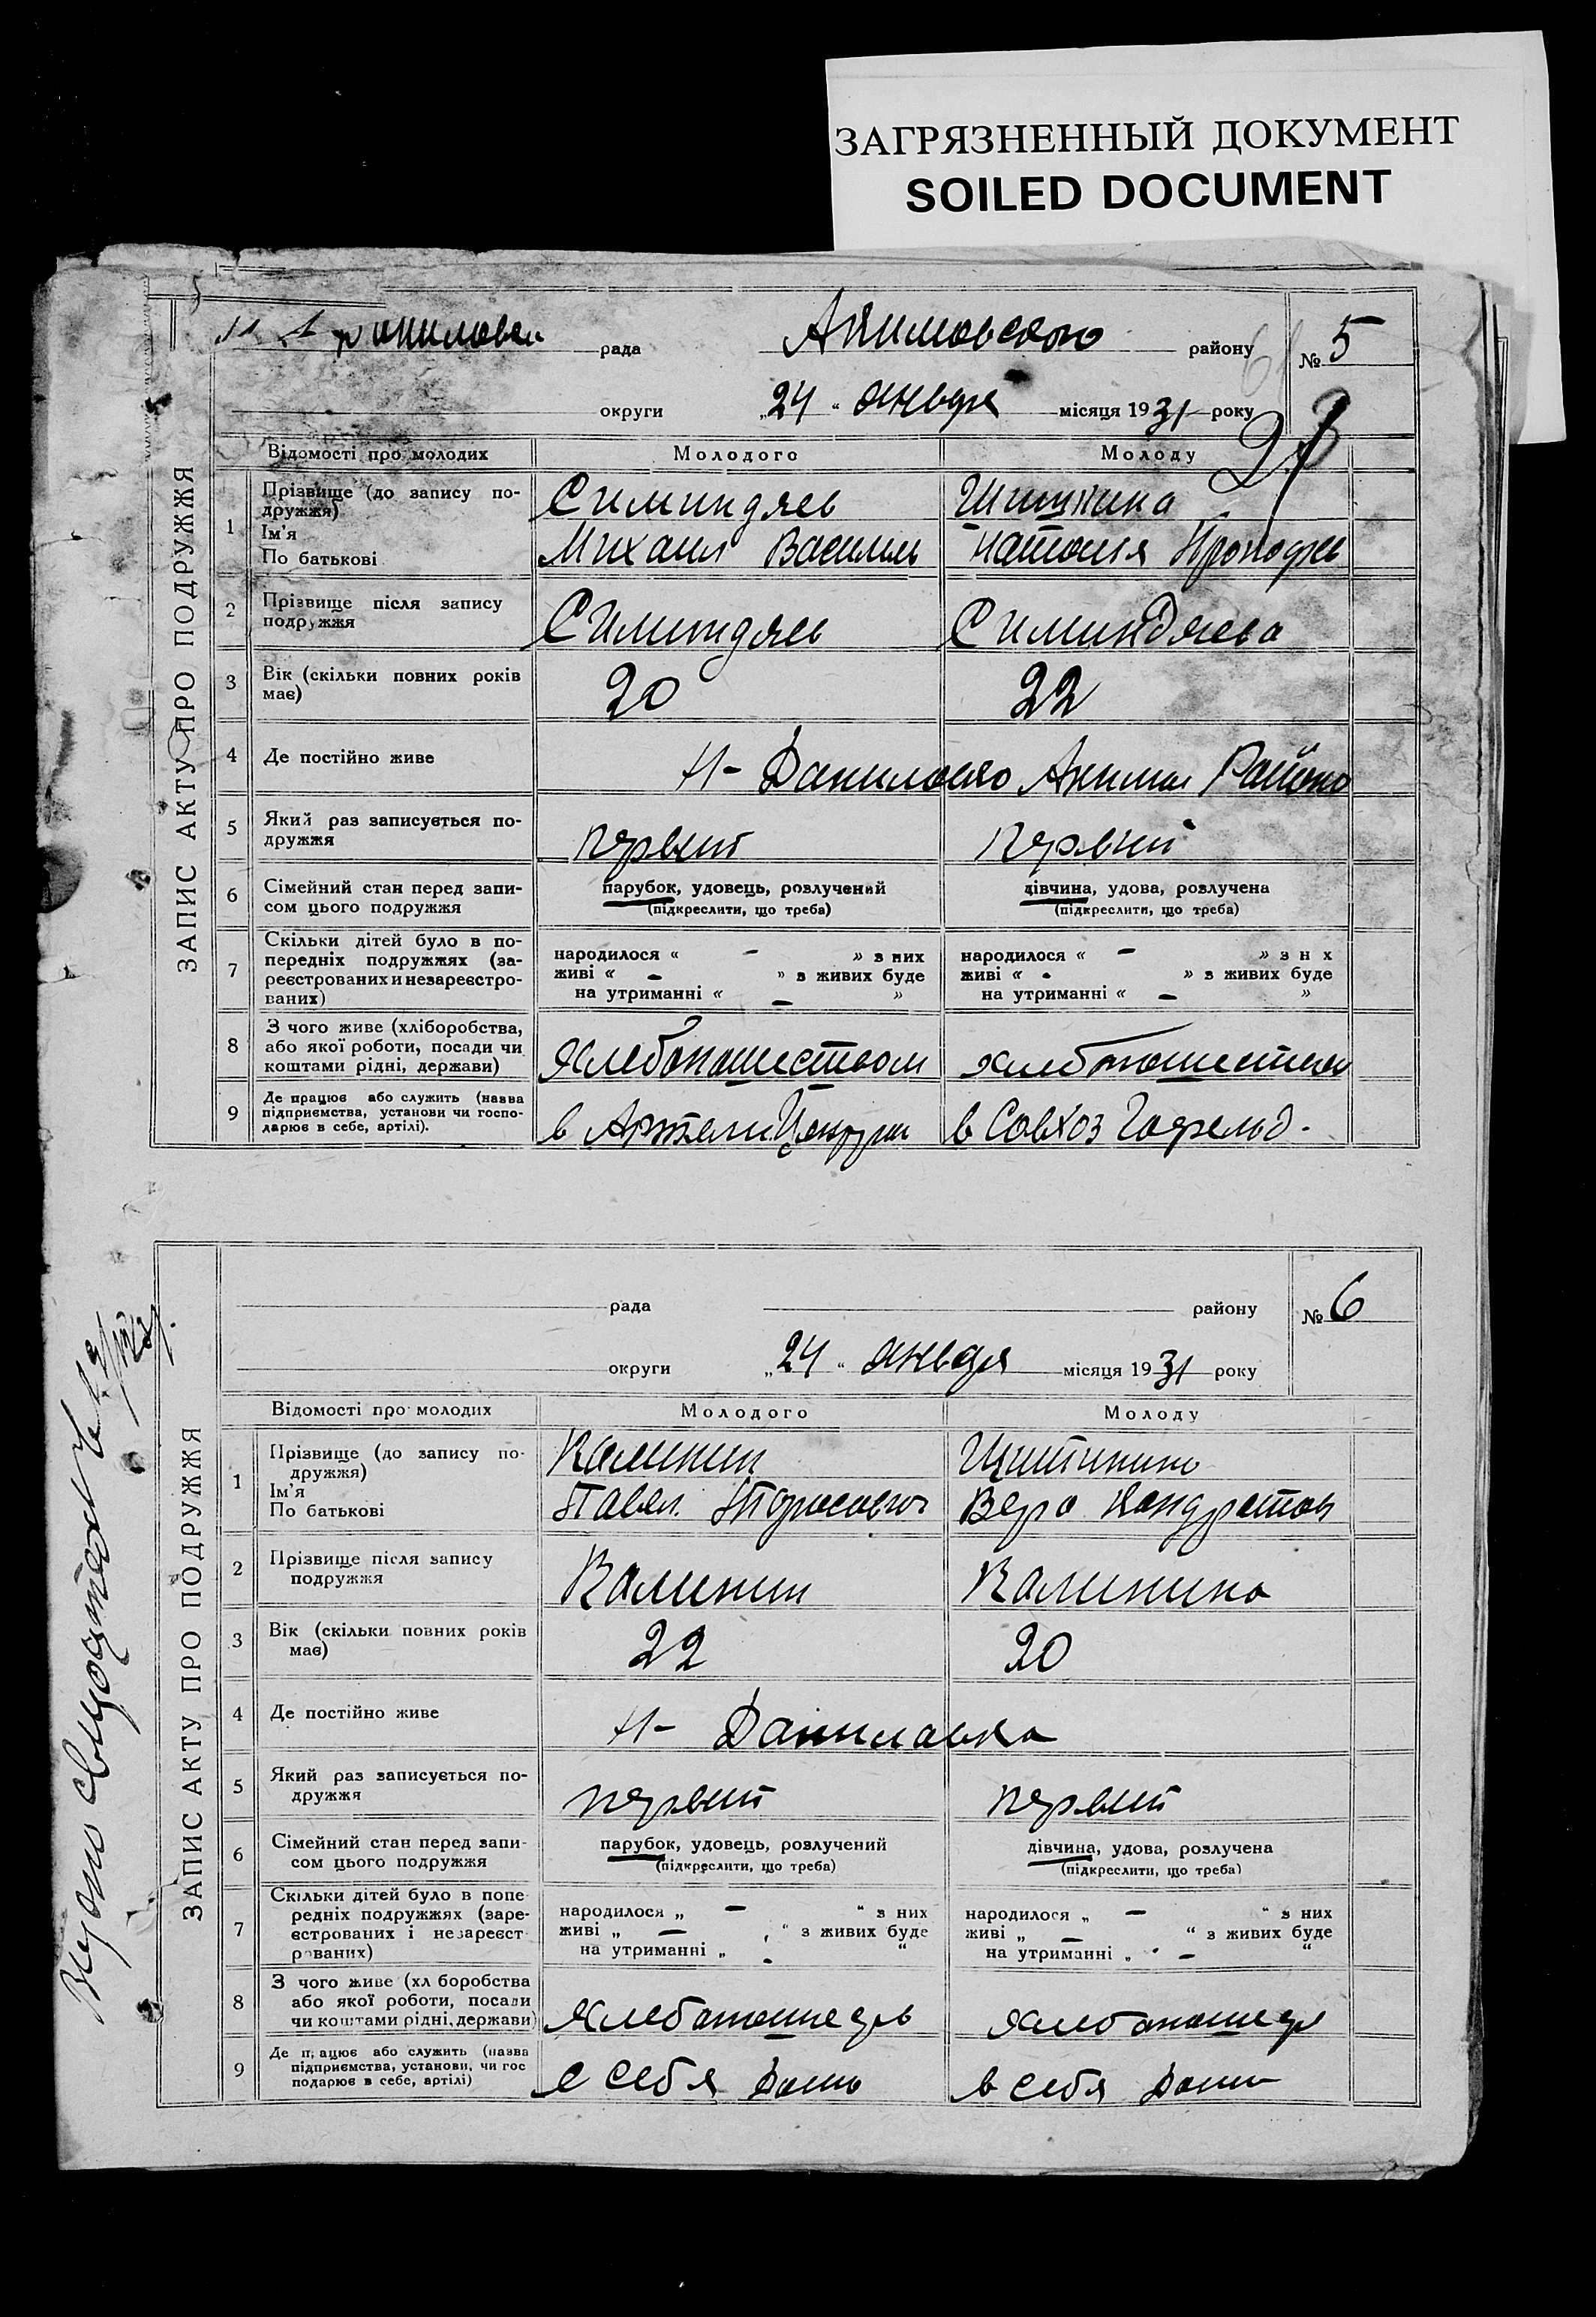 ЗАГРЯЗНЕННЫЙ ДОКУМЕНТ
SOILED DOCUMENT
ЗАПИС АКТУ ПРО ПОДРУЖЖЯ
рада Акимовского району № 5
округи „24“ января місяця 1931 року
Відомості про молодих Молодого Молоду
1 Прізвище (до запису по-
дружжя)
Ім'я
По батькові
Симиндяев Шишкина
Михаил Василь Наталья
2 Прізвище після запису
подружжя
Симиндяев Симиндяева
3 Вік (скільки повних років
має)
20 22
4 Де постійно живе
Н- Даниловко Аким Района
5 Який раз записується по-
дружжя
первый первый
6 Сімейний стан перед запи-
сом цього подружжя
парубок, удовець, розлучений дівчина, удова, розлучена
(підкреслити, що треба) (підкреслити, що треба)
7 Скільки дітей було в по-
передніх подружжях (за-
реєстрованих и незареєстро-
ваних)
народилося « — » з них народилося « — » з н х
живі « — » з живих буде живі « - » з живих буде
на утриманні « — » на утриманні « — »
8 З чого живе (хліборобства,
або якої роботи, посади чи
коштами рідні, держави)
хлебопашеством хлебопашеством
9 Де працює або служить (назва
підприємства, установи чи госпо-
дарює в себе, артілі).
в Артели в Совхоз
ЗАПИС АКТУ ПРО ПОДРУЖЖЯ
рада району № 6
округи „24“ января місяця 1931 року
Відомості про молодих Молодого Молоду
1 Прізвище (до запису по-
дружжя)
Ім'я
По батькові
Калинин Щитинина
Павел Тарасович Вера Кондратов
2 Прізвище після запису
подружжя
Калинин Калинина
3 Вік (скільки повних років
має)
22 20
4 Де постійно живе
Н- Даниловка
5 Який раз записується по-
дружжя
первый первый
6 Сімейний стан перед запи-
сом цього подружжя
парубок, удовець, розлучений дівчина, удова, розлучена
(підкреслити, що треба) (підкреслити, що треба)
7 Скільки дітей було в попе-
редніх подружжях (заре-
єстрованих і незареєст-
рованих)
народилося „ — “ з них народилося „ — “ з них
живі „ — “ з живих буде живі „ — “ з живих буде
на утриманні „ - “ на утриманні „ — “
8 З чого живе (хл боробства
або якої роботи, посади
чи коштами рідні, держави)
9 Де працює або служить (назва
підприємства, установи, чи гос
подарює в себе, артілі)
в себя дома в себя дома